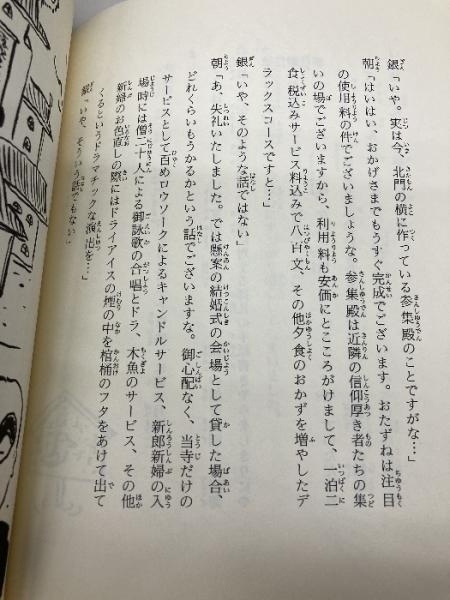 銀「いや。実は今、北門の横に作っている参集殿のことですがな…」
朝「はいはい、おかげさまでもうすぐ完成でございます。おたずねは注目
の使用料の件でございましょうな。参集殿は近隣の信仰厚き者たちの集
いの場でございますから、利用料も安価にとこころがけまして、一泊二
食・税込みサービス料込みで八百文、その他夕食のおかずを増やしたデ
ラックスコースですと…」
銀「いや、そのような話ではない」
朝「あ、失礼いたしました。では懸案の結婚式の会場として貸した場合、
どれくらいもうかるかという話でございますな。御心配なく、当寺だけの
サービスとして百めロウソークによるキャンドルサービス、新郎新婦の入
場時には僧二十人による御詠歌の合唱とドラ、木魚のサービス、その他
新婦のお色直しの際にはドライアイスの煙の中を棺桶のフタをあけて出て
くるというドラマチックな演出を…」
銀「いや、そういう話でもない」